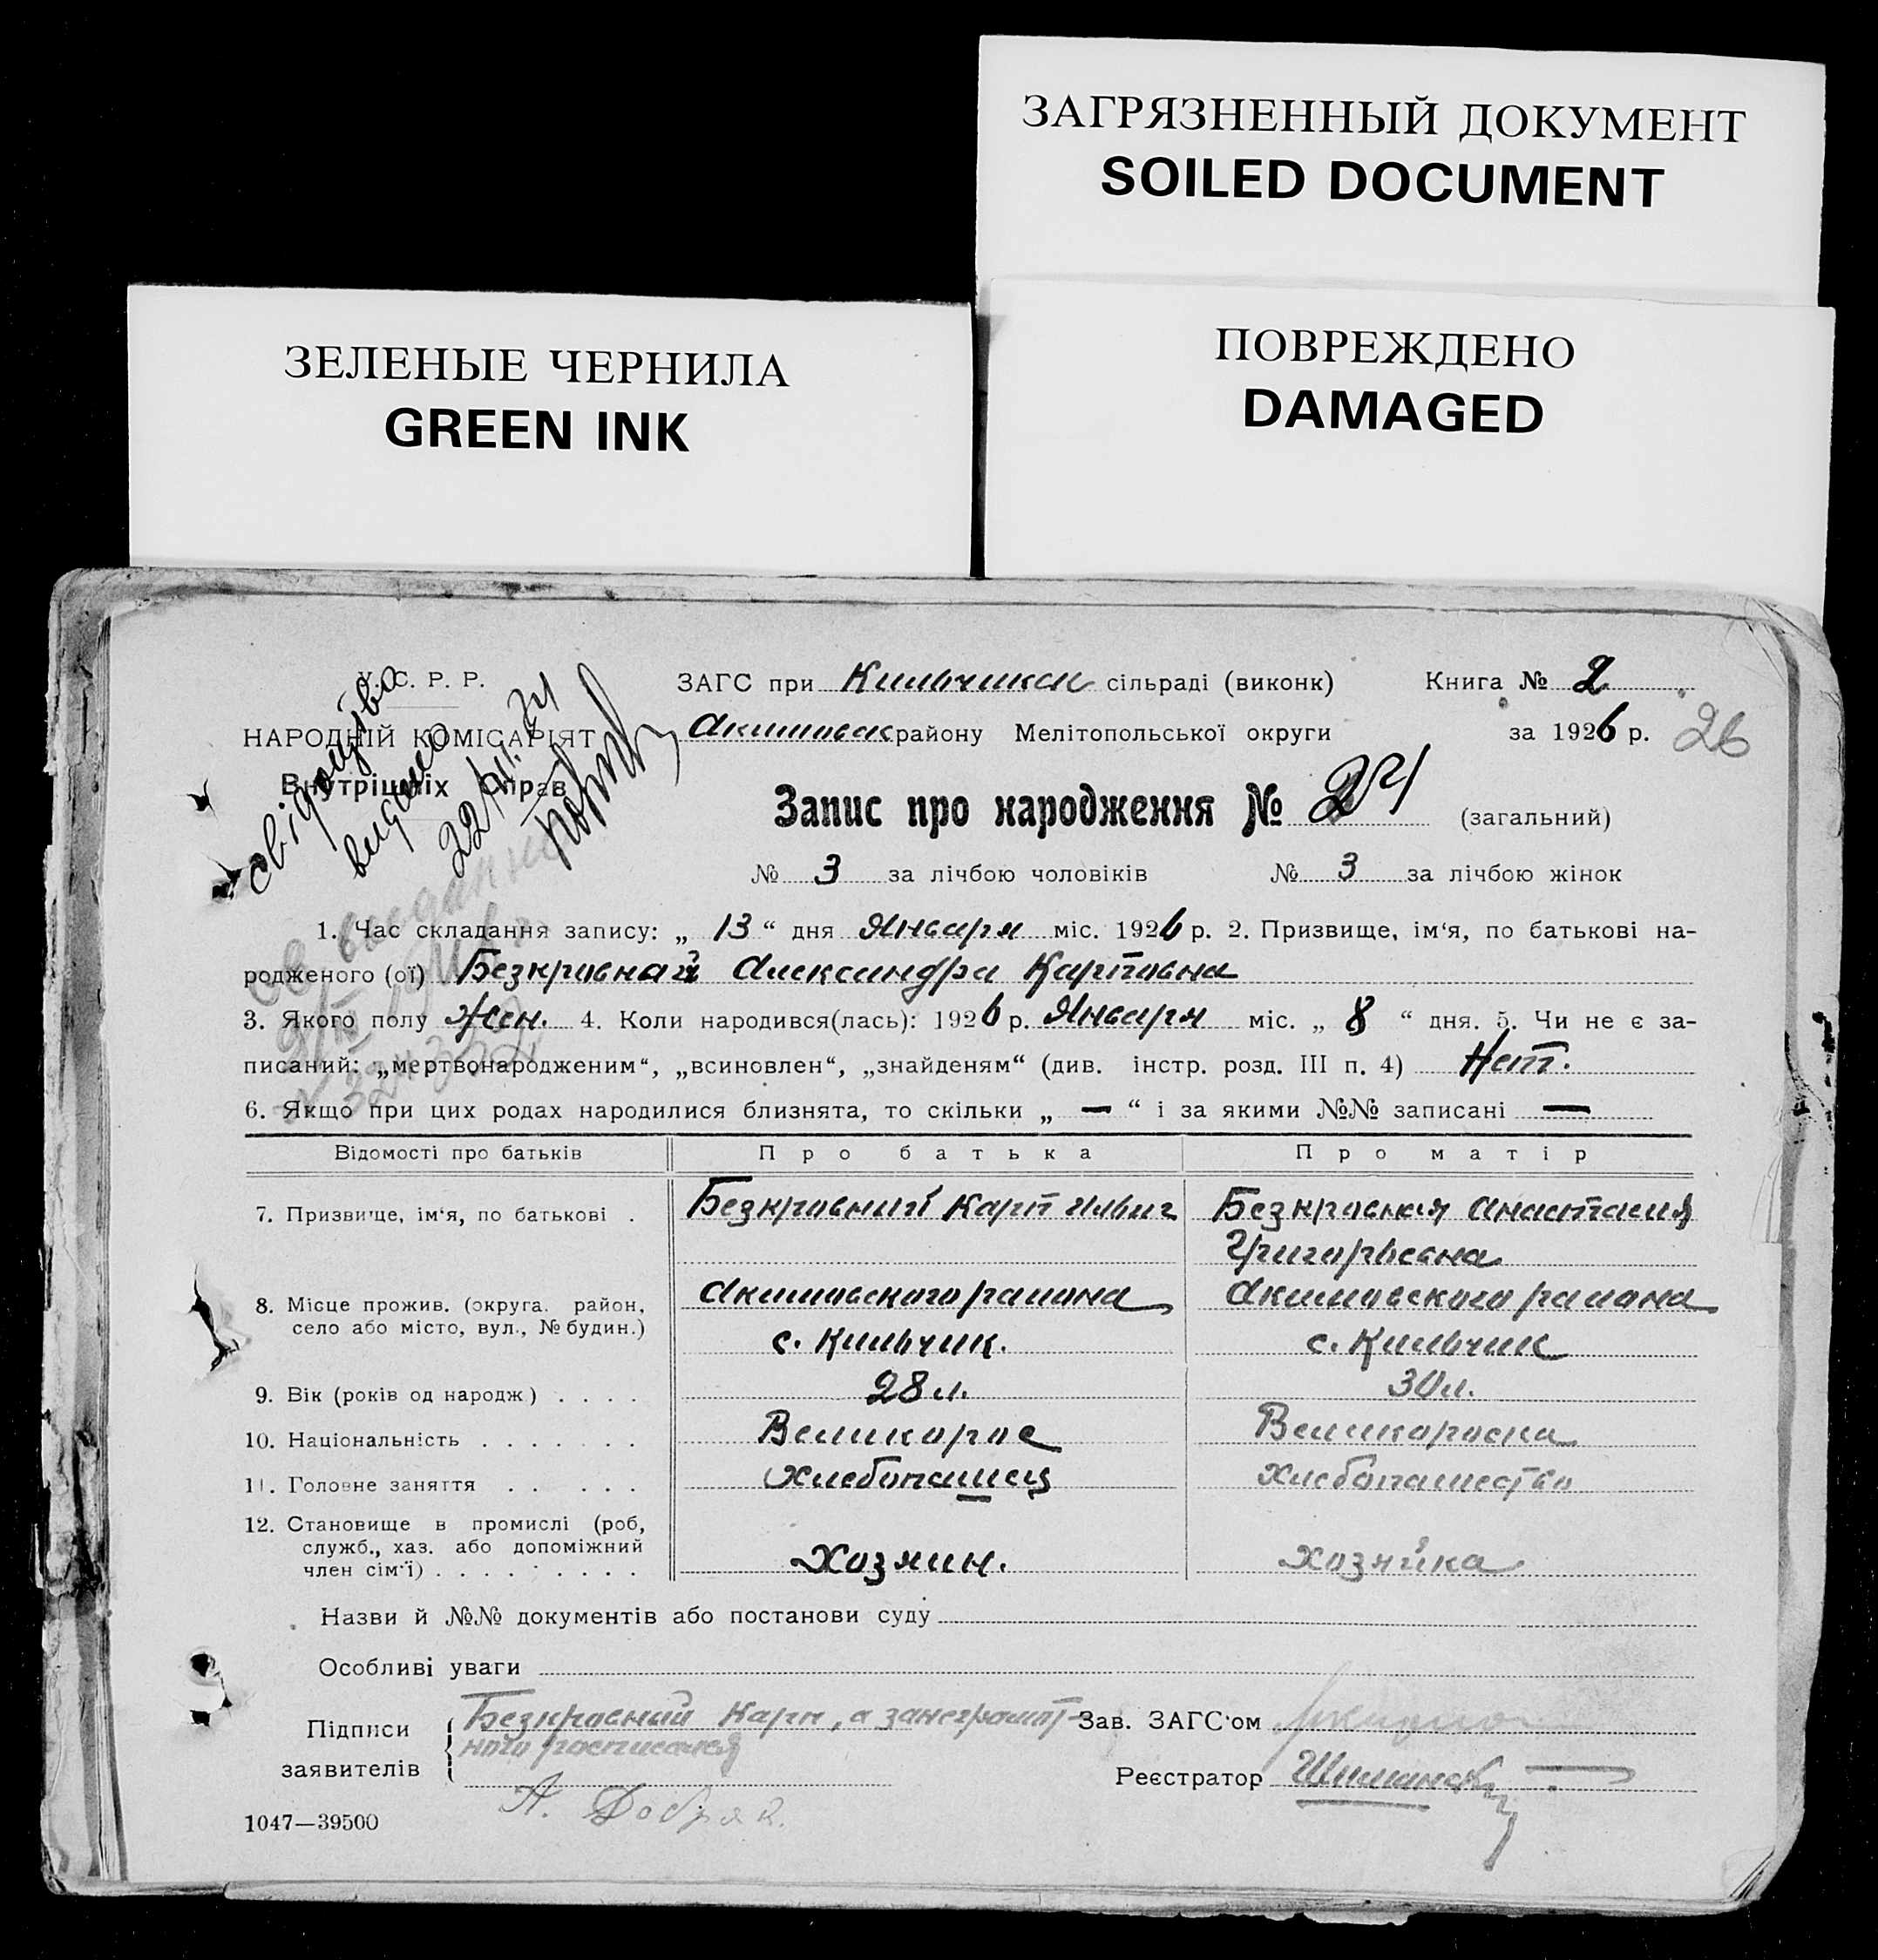 ЗАГРЯЗНЕННЫЙ ДОКУМЕНТ
SOILED DOCUMENT
ЗЕЛЕНЫЕ ЧЕРНИЛА
GREEN INK
ПОВРЕЖДЕНО
DAMAGED
У. С. Р. Р.
НАРОДНІЙ КОМІСАРІЯТ
Внутрішніх Справ
свідоцтво
видано
ЗАГС при Кильчикск сільраді (виконк)
Книга № 2
Акимовск району Мелітопольської округи
за 1926 р.
26
Запис про народження № 24 (загальний)
№ 3 за лічбою чоловіків № 3 за лічбою жінок
1. Час складання запису: „ 13 “ дня Января міс. 1926 р. 2. Призвище, ім‘я, по батькові на-
родженого (ої) Безкровная Александра Карповна
3. Якого полу Жен. 4. Коли народився(лась): 1926 р. Января міс. „ 8 “ дня. 5. Чи не є за-
писаний: „мертвонародженим“, „всиновлен“, „знайденям“ (див. інстр. розд. III п. 4) Нет.
6. Якщо при цих родах народилися близнята, то скільки „ — “ і за якими №№ записані —
Відомості про батьків
Про батька
Про матір
7. Призвище, ім‘я, по батькові .
Безкровний Карп Ильич
Безкровная Анастасия
Григорьевна
8. Місце прожив. (округа. район,
село або місто, вул., № будин.)
Акимовского района
с. Кильчик.
Акимовского района
с. Кильчик
9. Вік (років од народж) . . . .
28 л.
30 л.
10. Національність . . . . . . .
Великорос
Великороска
11. Головне заняття . . . . .
Хлебопашец
Хлебопашество
12. Становище в промислі (роб,
служб., хаз. або допоміжний
член сім‘ї) . . . . . . . . .
Хозяин.
хозяйка
Назви й №№ документів або постанови суду
Особливі уваги
Підписи
заявителів
Безкровный Карп, а занеграмот-
ного росписался
А. Добряк.
Зав. ЗАГС‘ом
Реєстратор
1047—39500